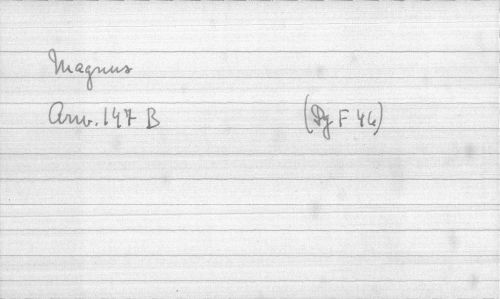 Magnus
Arw. 147 B (Dg F 46)